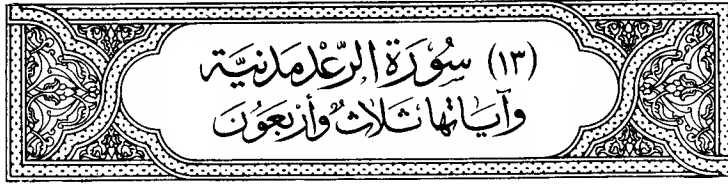 (١٣) سُوْرَة الرَّعْد مَدَنيَّة
وَآيَاتهَا ثَلَاثٌ وَأَرْبَعُونَ